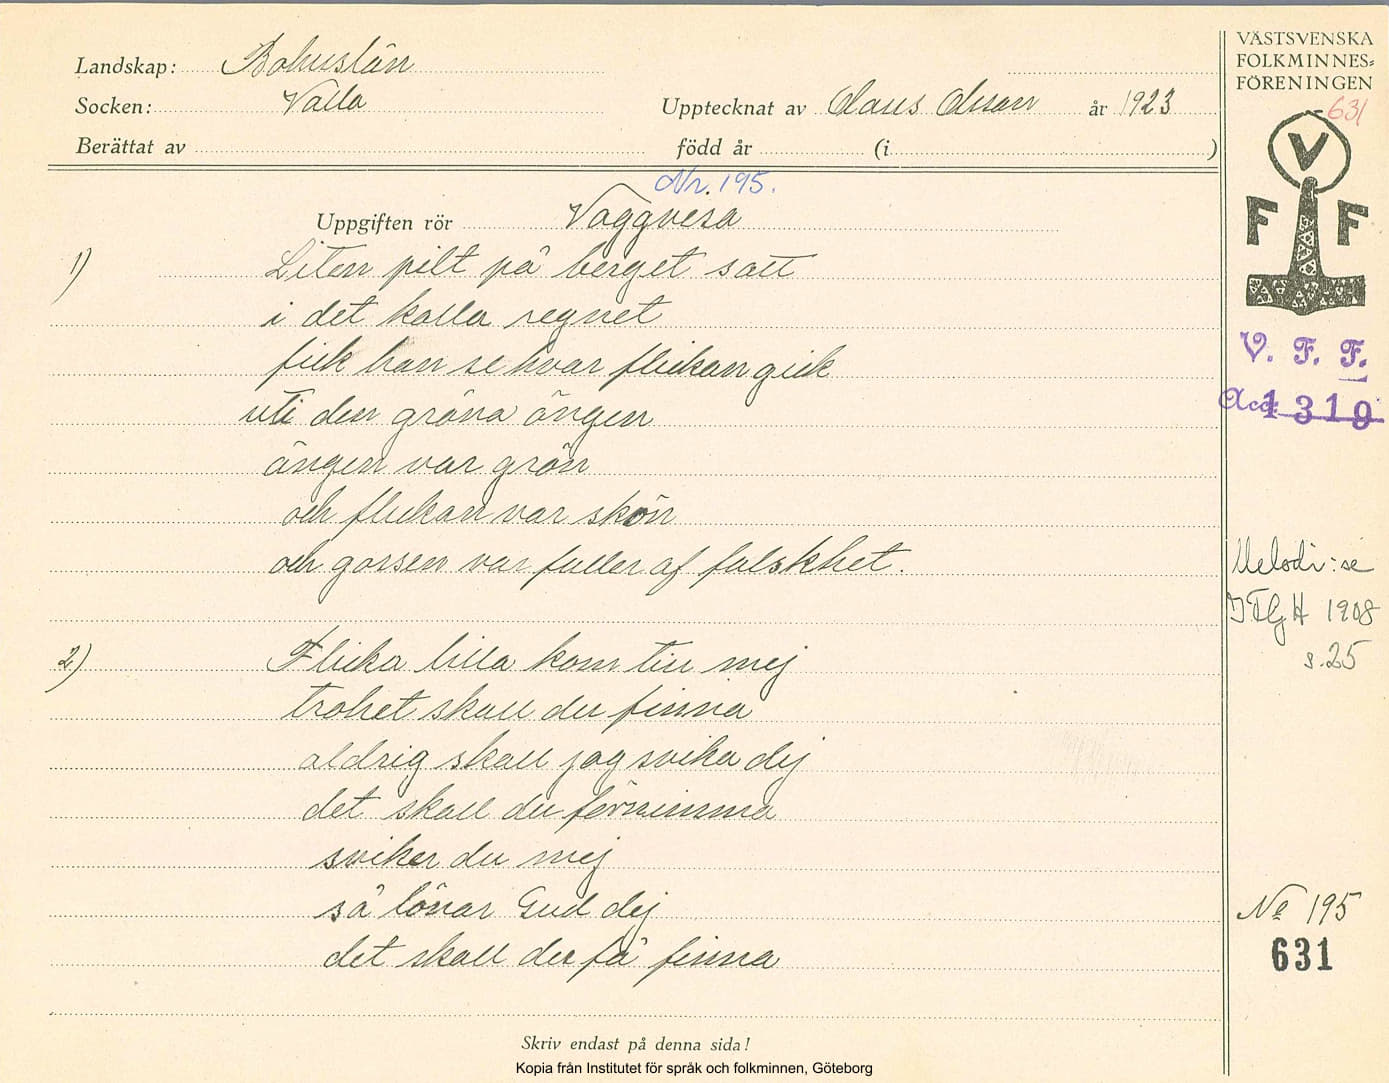 Landskap: Bohuslän
Socken: Valla
Upptecknat av Olaus Olsson år 1923
Berättat av
född år (i )
Nr. 195.
Uppgiften rör Vaggvisa
1) Liten pilt på berget satt
i det kalla regnet
fick han se hvar flickan gick
uti den gröna ängen
ängen var grön
och flickan var skön
och gossen var fuller af falskhet.
2) Flicka lilla kom till mej
trohet skall du finna
aldrig skall jag svika dej
det skall du förnimma
sviker du mej
så lönar Gud dej
det skall du få finna
Skriv endast på denna sida!
Kopia från Institutet för språk och folkminnen, Göteborg
VÄSTSVENSKA
FOLKMINNES=
FÖRENINGEN
631
V
F F
V. F. F.
Acc. 1310
Melodi: se
1908
s. 25
No 195
631